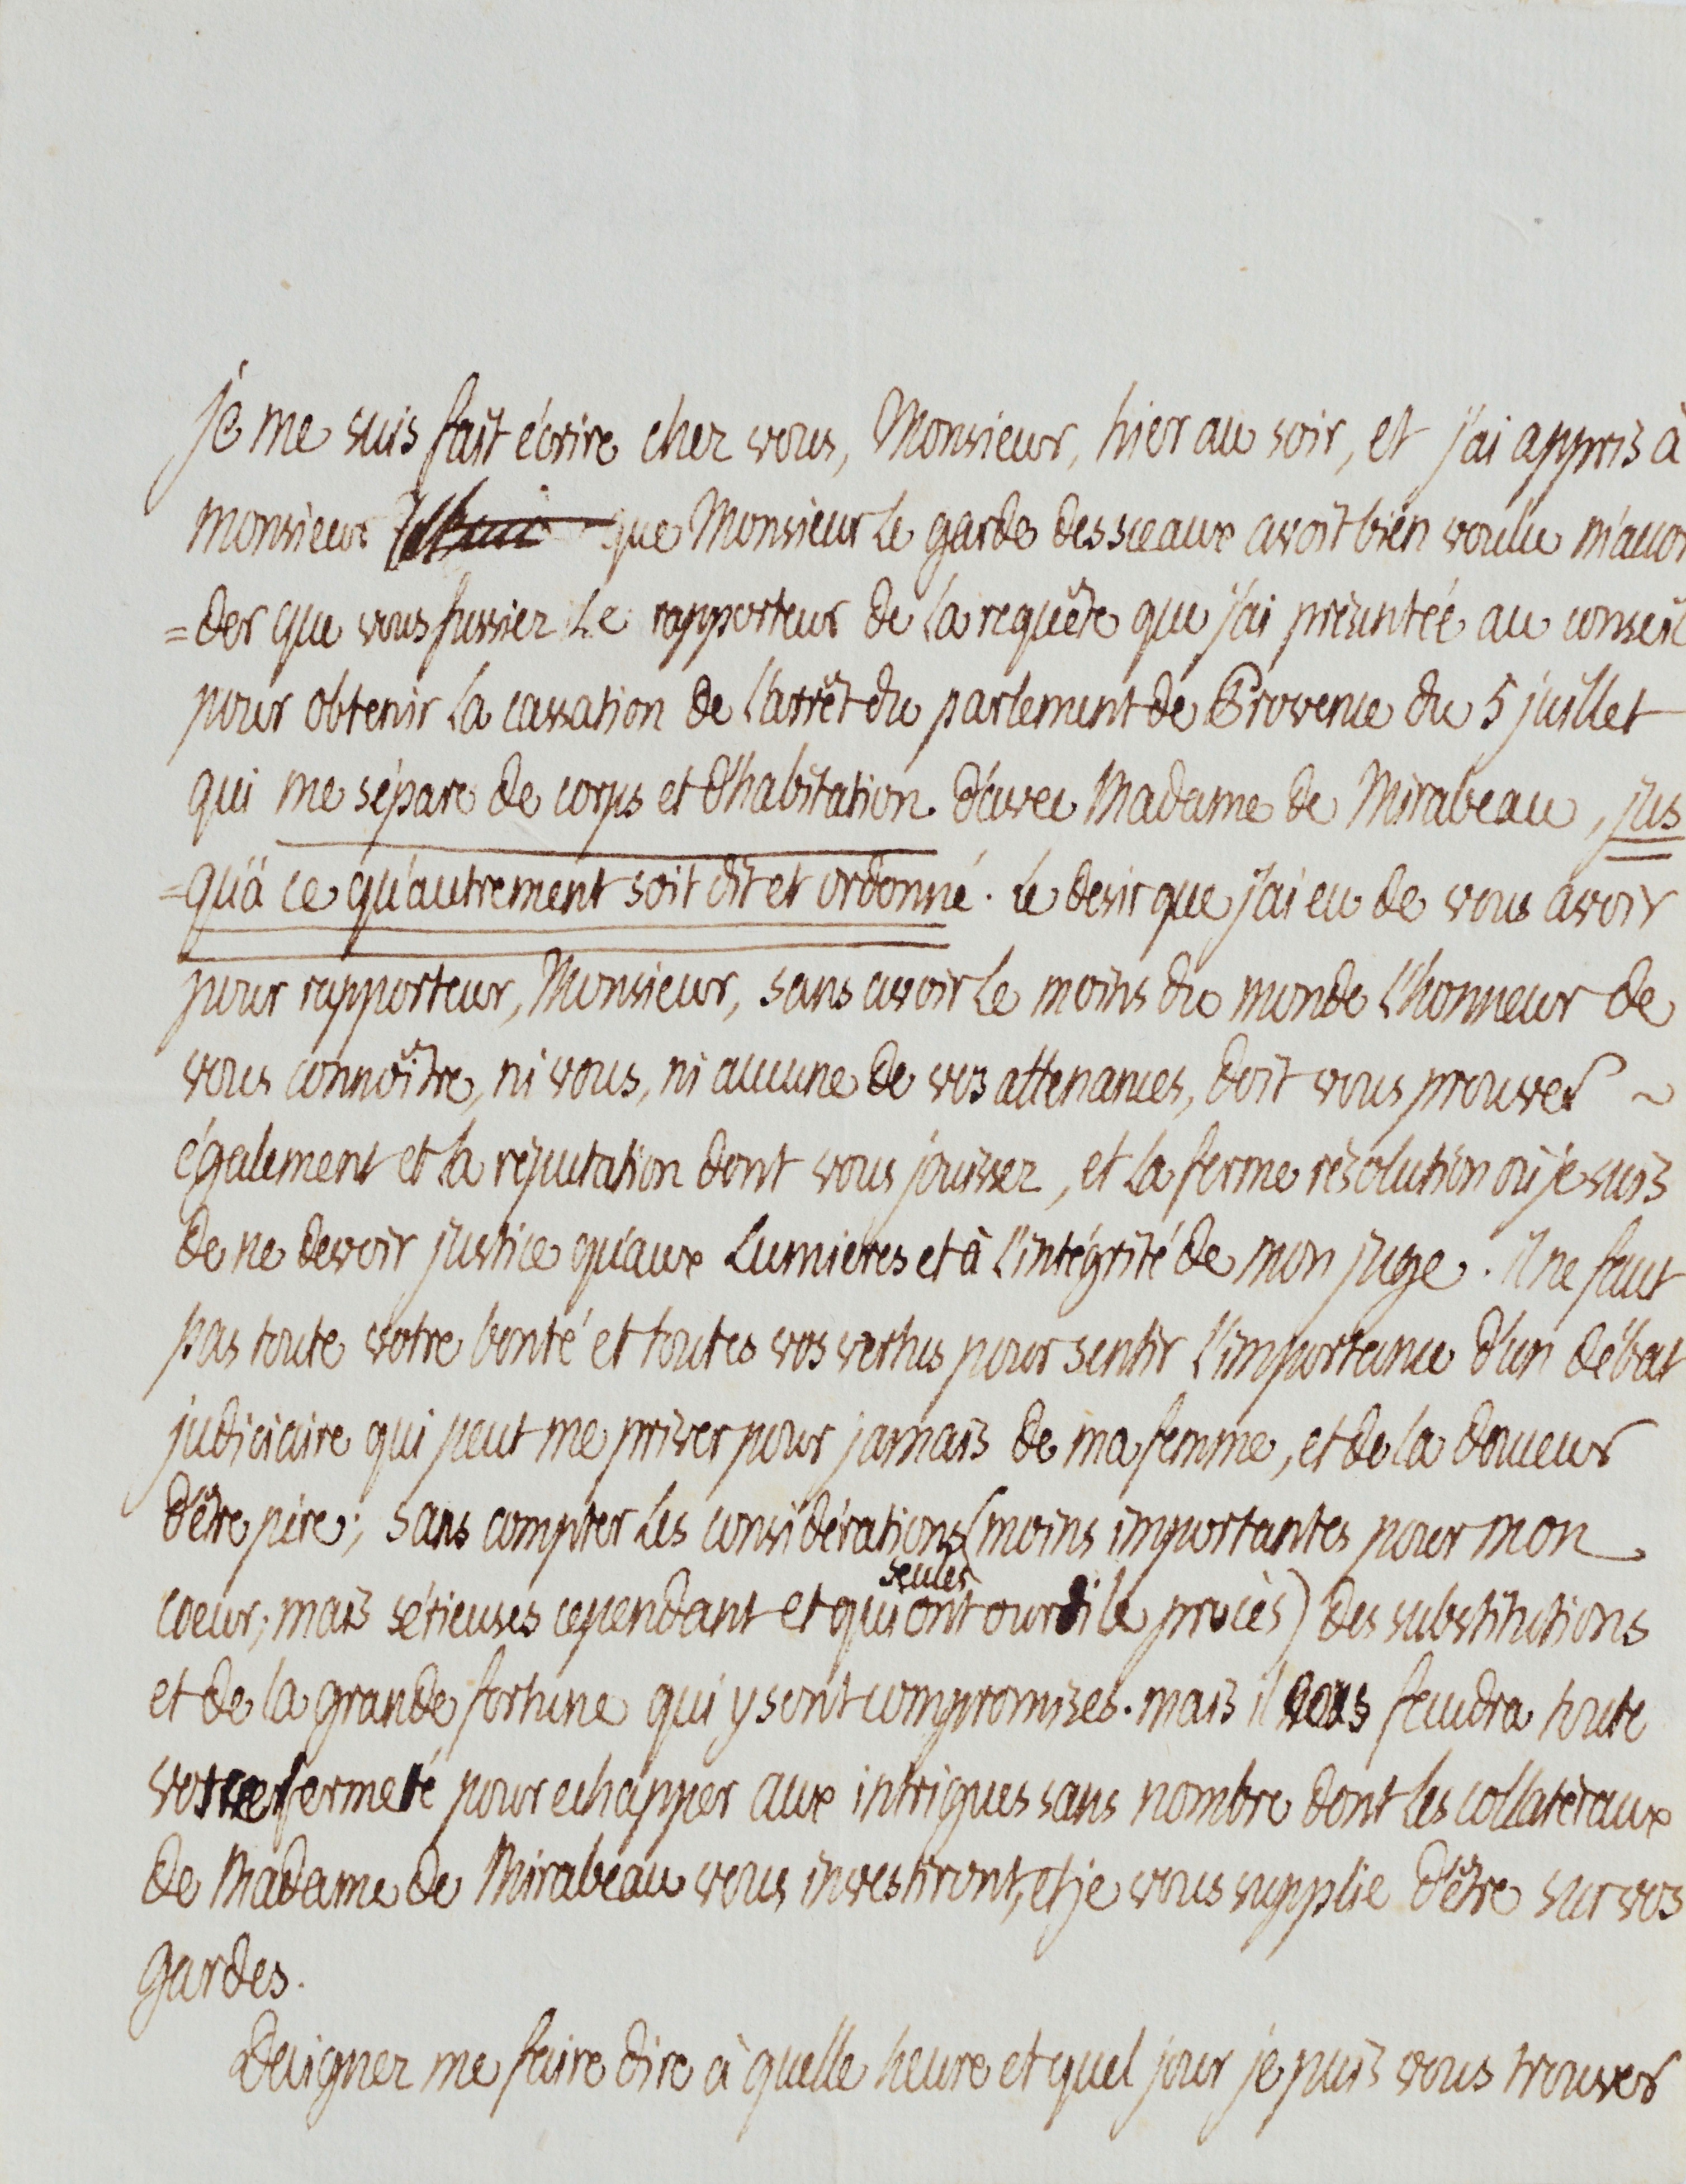 je me suis fait écrire chez vous, Monsieur, hier au soir, et j'ai appris à
monsieur que Monsieur le garde des sceaux avoit bien voulu m'accor
=der que vous fussiez le rapporteur de la requête que j'ai présentée au conseil
pour obtenir la cassation de l'arrêt du parlement de Provence du 5 juillet
qui me sépare de corps et d'habitation d'avec Madame de Mirabeau, jus
=qu'à ce qu'autrement soit dit et ordonné. le desir que j'ai eu de vous avoir
pour rapporteur, Monsieur, sans avoir le moins du monde l'honneur de
vous connoître, ni vous, ni aucune de vos attenances, doit vous prouver ~
également et la réputation dont vous jouissez, et la ferme résolution où je suis
de ne devoir justice qu'aux lumieres et à l'intégrité de mon juge. il ne faut
pas toute votre bonté et toutes vos vertus pour sentir l'importance d'un débat
judiciaire qui peut me priver pour jamais de ma femme, et de la douceur
d'être père; sans compter les considérations (moins importantes pour mon
coeur; mais sérieuses cependant et qui seules ont ourdi le procès) des substitutions
et de la grande fortune qui y sont compromises. mais il vous faudra toute
votre fermeté pour echapper aux intrigues sans nombre dont les collatéraux
de Madame de Mirabeau vous investiront, et je vous supplie d'être sur vos
gardes.
Daignez me faire dire à quelle heure et quel jour je puis vous trouver